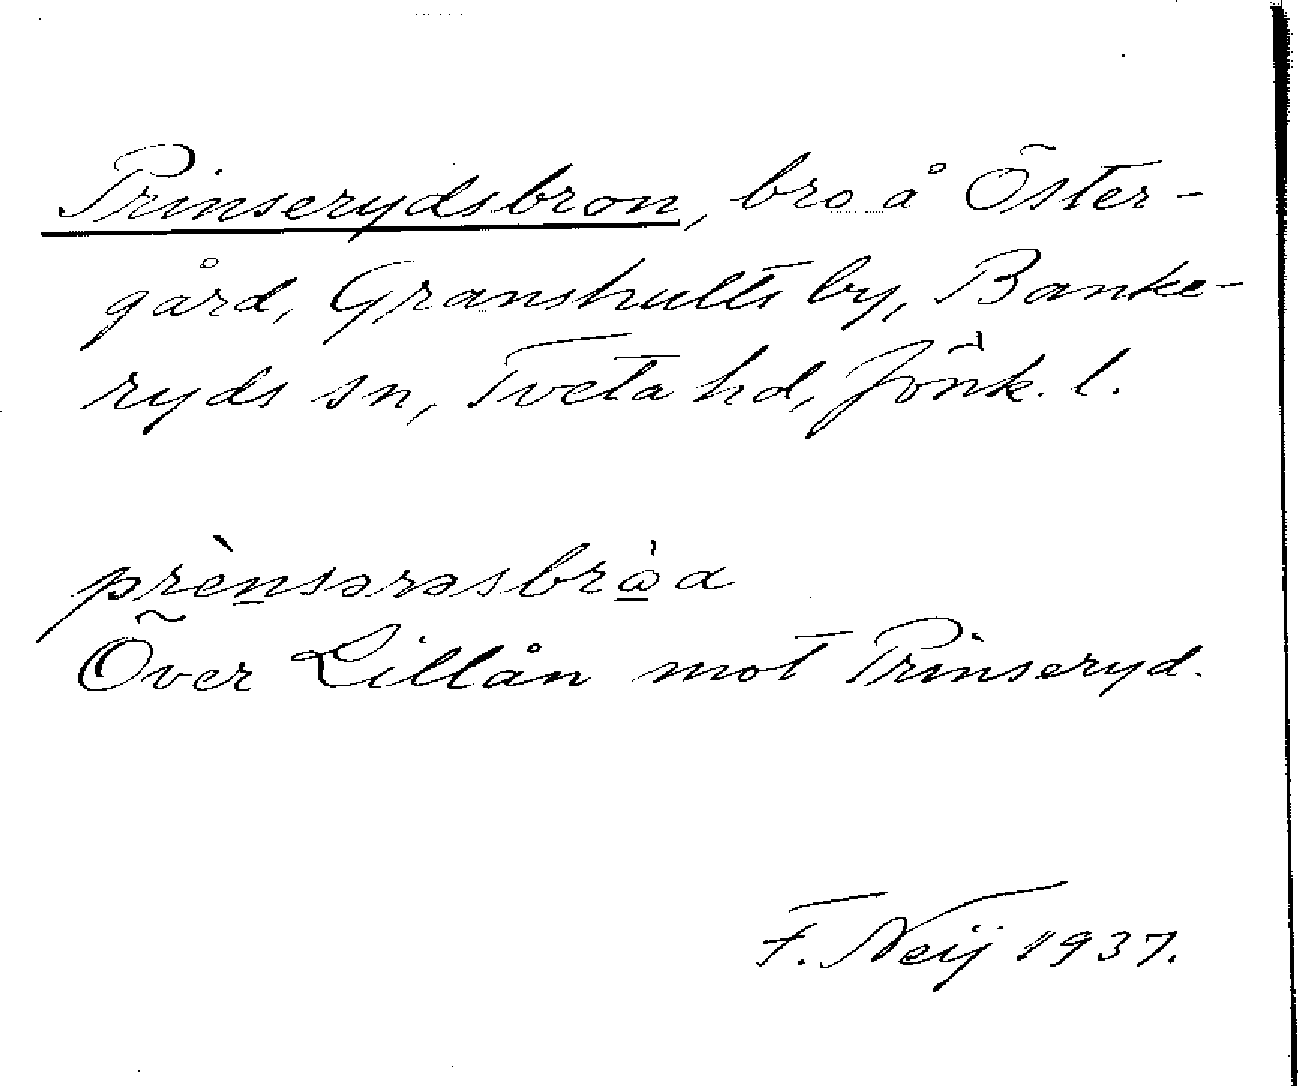 Prinserydsbron, bro å Öster-
gård, Granshults by, Banke-
ryds sn, Tveta hd, Jönk. l.
prènsərəsbrὼa
Över Lillån mot Prinseryd.
F. Neij 1937.